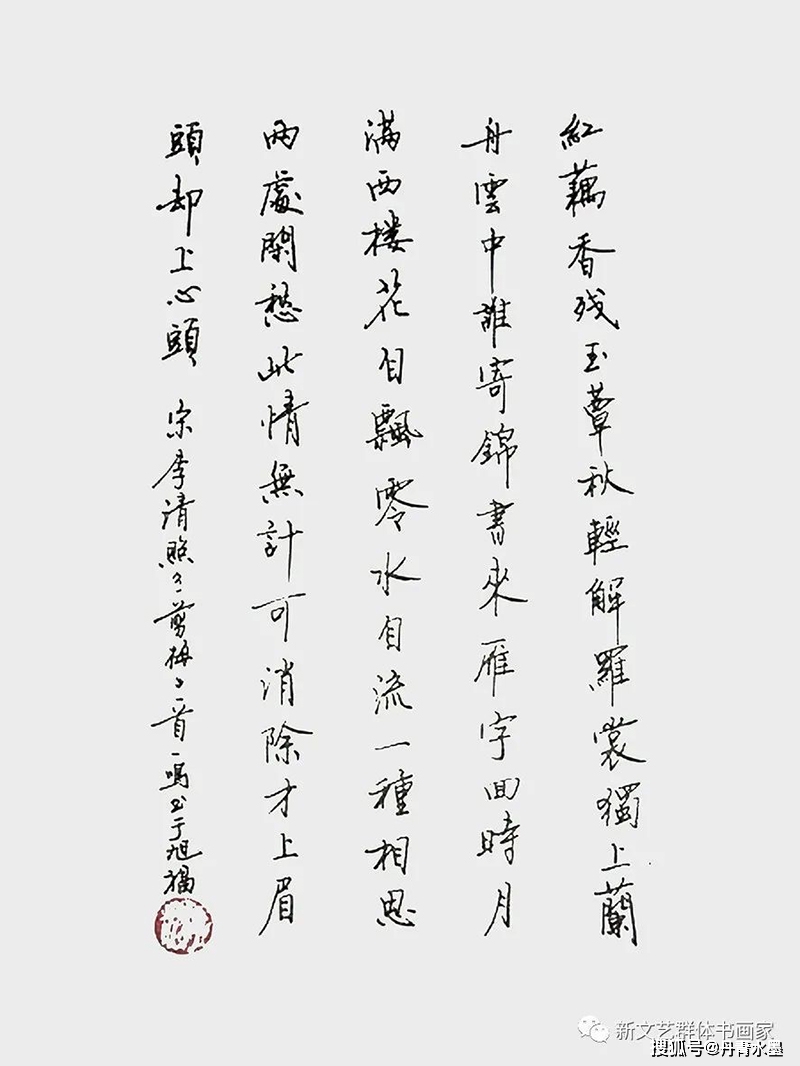 紅藕香残玉蕈秋輕解羅裳獨上蘭
舟雲中誰寄錦書來雁字囬時月
满西楼花自飄零水自流一種相思
两處閑愁此情無計可消除才上眉
頭却上心頭 宋李清照《一剪梅》一首一鸣书于旭福
新文艺群体书画家
搜狐号@丹青水墨